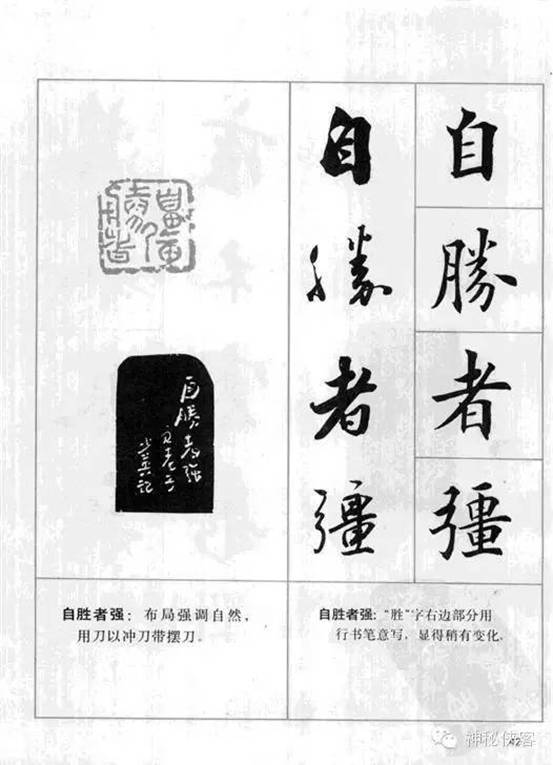 自勝者彊
自勝者彊
自勝者强
自胜者强：布局强调自然，
用刀以冲刀带摆刀。
自胜者强：“胜”字右边部分用
行书笔意写，显得稍有变化。
神秘侠客